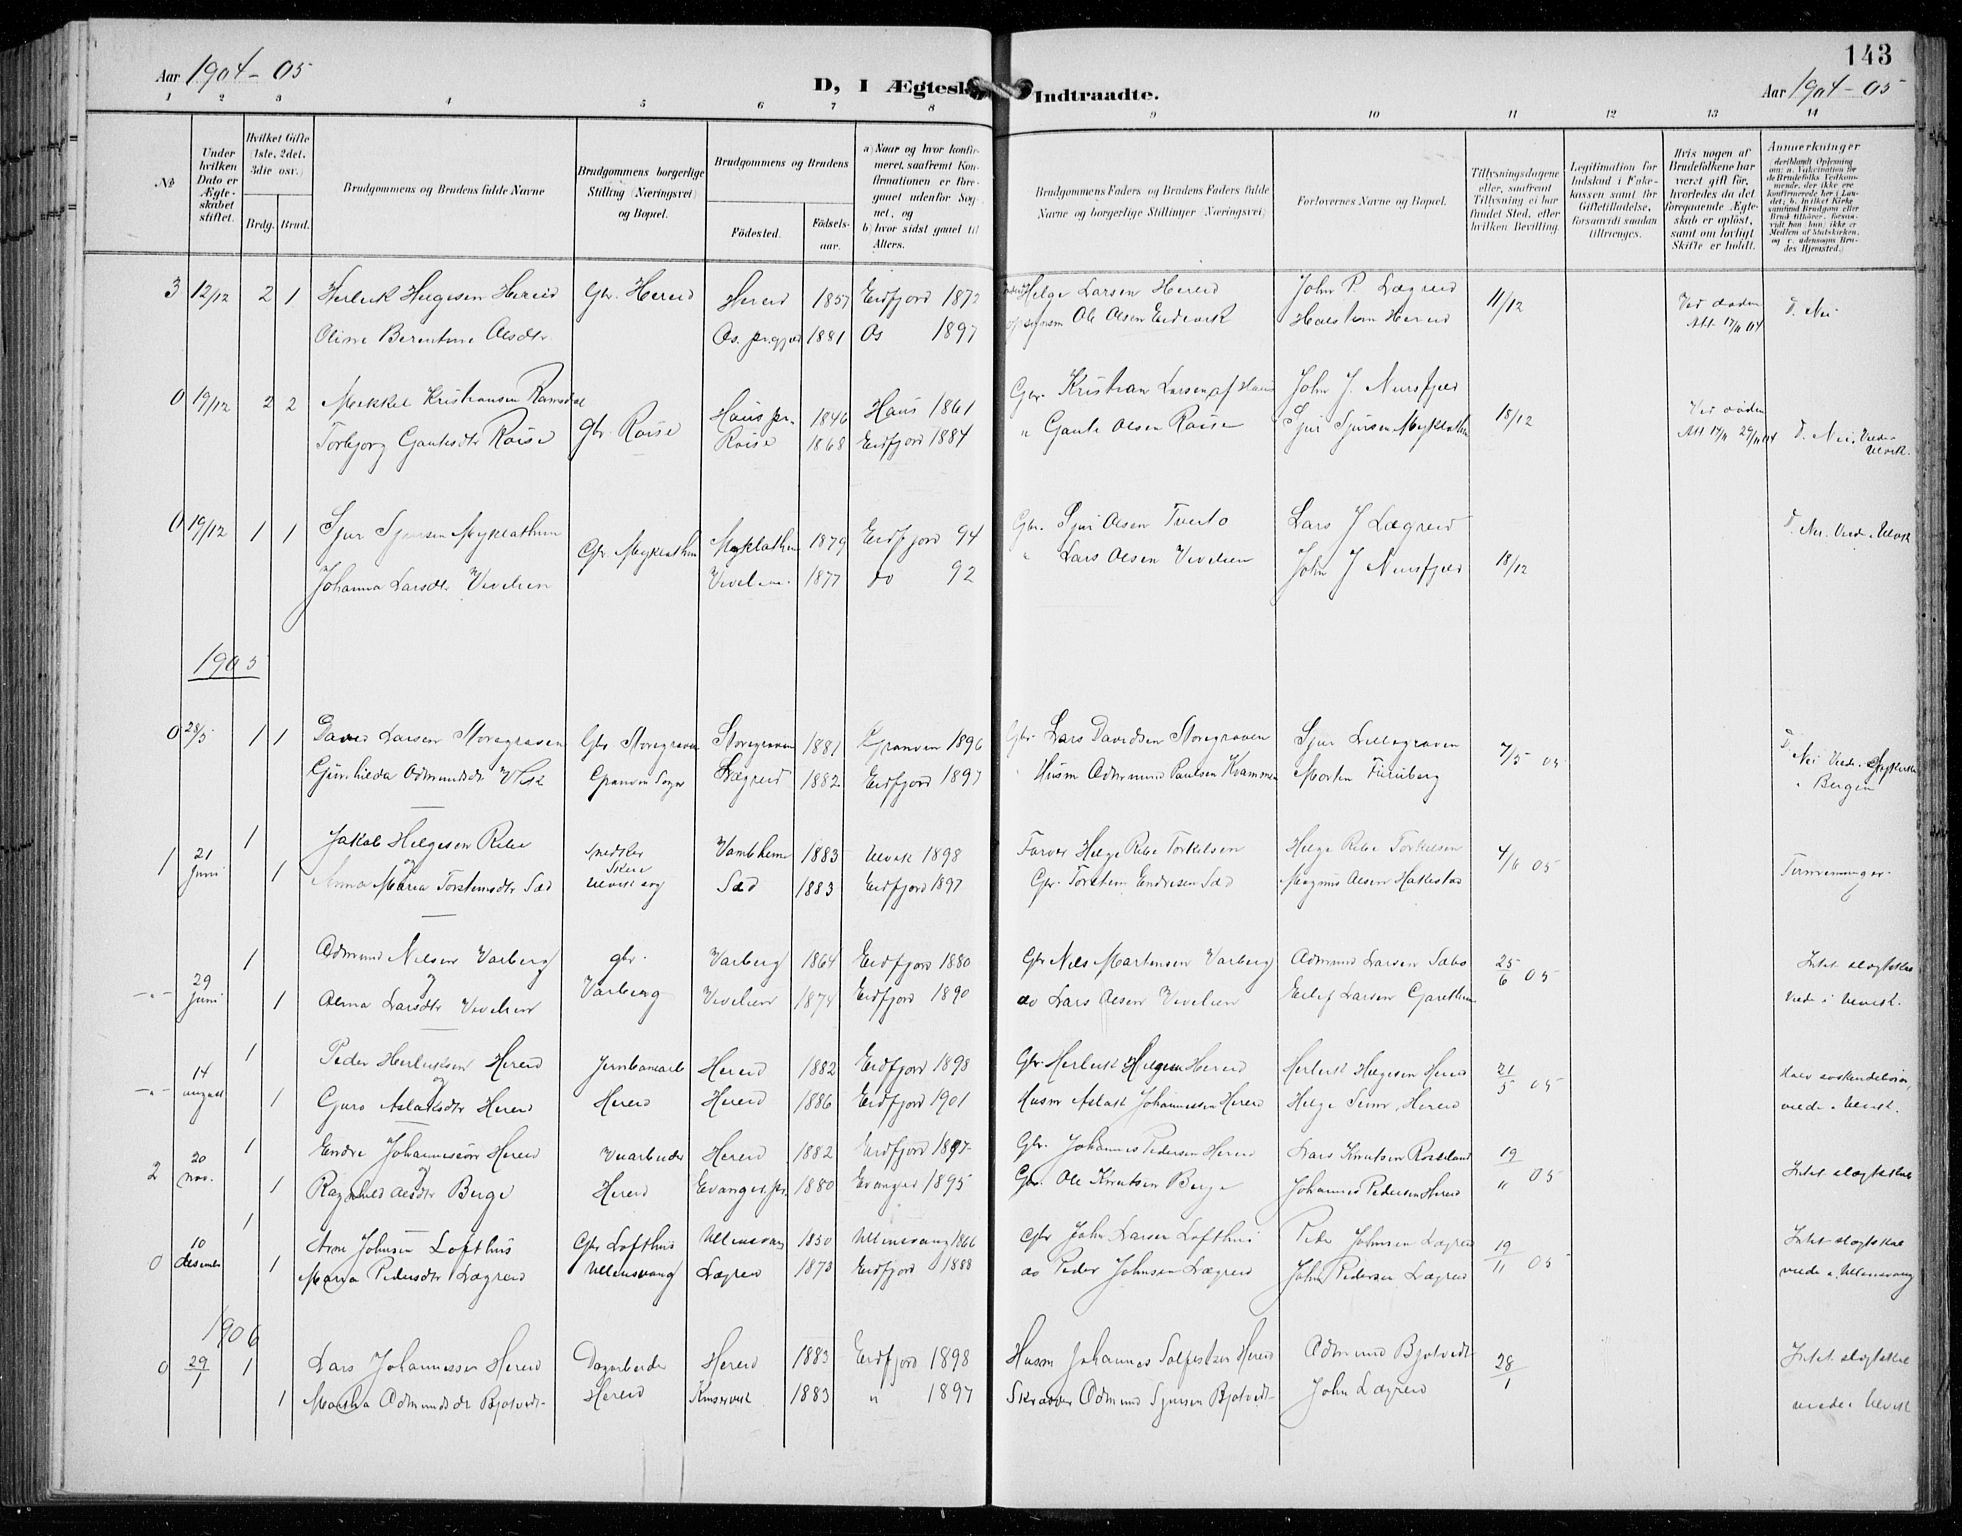 143
Aar 1904-05
D, I Ægtesk
Indtraadte.
Aar 1904-05
1 2 3 4 5 6 7 8 9 10 11 12 13 14
No
Under hvilken Dato er Ægteskabet stiftet.
Hvilket Gifte (1ste, 2det, 3die osv.)
Brdg. Brud.
Brudgommens og Brudens fulde Navne
Brudgommens borgerlige Stilling (Næringsvei) og Bopæl.
Brudgommens og Brudens
Födested. Födselsaar.
a) Naar og hvor konfirmeret, saafremt Konfirmationen er foregaaet udenfor Sognet, og
b) hvor sidst gaaet til Alters.
Brudgommens Faders og Brudens Faders fulde Navne og borgerlige Stillinger (Næringsvei)
Forlovernes Navne og Bopæl.
Tillysningsdagene eller, saafremt Tillysning ei har fundet Sted, efter hvilken Bevilling.
Legitimation for Indskud i Enkekassen samt for Giftetilladelse, forsaavidt saadan tiltrænges.
Hvis nogen af Brudefolkene har været gift för, hvorledes da det foregaaende Ægteskab er oplöst, samt om lovligt Skifte er holdt.
Anmærkninger
3 12/12 2 1 Herleik Helgesen Hereid Gbr. Hereid Hereid 1857 Eidfjord 1872 Helge Larsen Hereid John P. Lægreid 11/12 Ved døden D. Nei
Oline Berentine Olsdtr Os pr.gjæld 1881 Os 1897 Ole Olsen Eidevik Halstein Hereid
0 19/12 2 2 Mikkel Kristiansen Ramsdal Gbr. Røise Haus pr. 1846 Haus 1861 Gbr. Kristian Larsen af Haus John J. Nursfjeld 18/12 Ved døden
Torbjorg Gautesdtr Røise Røise 1868 Eidfjord 1884 " Gaute Olsen Røise Sjur Sjursen Myklathun D. Nei. Viede i Ulvik.
0 19/12 1 1 Sjur Sjursen Myklathun Gbr. Myklathun Myklathun 1879 Eidfjord 94 Gbr. Sjur Olsen Tveito Lars J Lægreid D. Nei. Viede i Ulvik
Johanna Larsdtr Vivelien Vivelien 1877 do 92 " Lars Olsen Vivelien John J Nursfjeld 18/12
1905
0 28/5 1 1 David Larsen Storegraven Gbr Storegraven Storegraven 1881 Granvin 1896 Gbr. Lars Davidsen Storegraven Sjur Lillegraven 7/5 05
Gunhilda Odmundsdtr Granvin Sogn Lægreid 1882 Eidfjord 1897 Husm Odmund Paulsen Kvammen Morten Furuberg Nei Viede i Bergen
1 21 Juni 1 Jakob Helgesen Ribe Snedker Vambheim 1883 Ulvik 1898 Farver Helge Ribe Torkelsen Helge Ribe Torkelsen 4/6 05
og
1 Anna Maria Torsteinsdtr Sæd Ulvik sog Sæd 1883 Eidfjord 1897 Gbr. Torstein Endresen Sæd Magnus Olsen Hakestad Tirmenninger.
-"- 29 Juni 1 Odmund Nilsen Varberg gbr. Varberg 1864 Eidfjord 1880 Gbr Nils Martinsen Varberg Odmund Larsen Sæbo 25/6 05 Intet slægtskab
og
1 Anna Larsdtr Vivelien Varberg Vivelien 1874 Eidfjord 1890 do Lars Olsen Vivelien Eilif Larsen Garethun Viede i Ulvik.
-"- 14 august 1 Peder Herleiksen Hereid Jernbanearb Hereid 1882 Eidfjord 1898 Gbr. Herleik Helgesen Hereid Herleik Helgesen Hereid 21/5 05 Halv søskendebørn
og
1 Guro Aslaksdtr Hereid Hereid Hereid 1886 Eidfjord 1901 Husm Aslak Johannessen Hereid Helge Hereid viede i Ulvik.
2 20 nov. 1 Endre Johannessen Hereid Veiarbeider Hereid 1882 Eidfjord 1897 Gbr. Johannes Pedersen Hereid Lars Knutsen Rosseland 19/11 05
og
1 Ragnhild Olsdtr Berge Hereid Evanger pr. 1880 Evanger 1895 Gbr. Ole Knutsen Berge Johannes Pedersen Hereid Intet slægtskab
0 10 desember 1 Arne Johnsen Lofthus Gbr Lofthus Ullensvang 1850 Ullensvang 1866 Gbr John Larsen Lofthus Peder Johnsen Lægreid 19/11 05 Intet slægtskab
1 Marta Pedersdtr Lægreid Ullensvang Lægreid 1873 Eidfjord 1888 do Peder Johnsen Lægreid John Pedersen Lægreid viede i Ullensvang
1906
0 29/1 1 Lars Johannessen Hereid Dagarbeider Hereid 1883 Eidfjord 1898 Husm Johannes Hereid Odmund Bjotveit 28/1 Intet slægtskab
1 Martha Odmundsdtr Bjotveit Hereid Kinservik 1883 " 1897 Skræder Odmund Sjursen Bjotveit John Lægreid viede i Ulvik